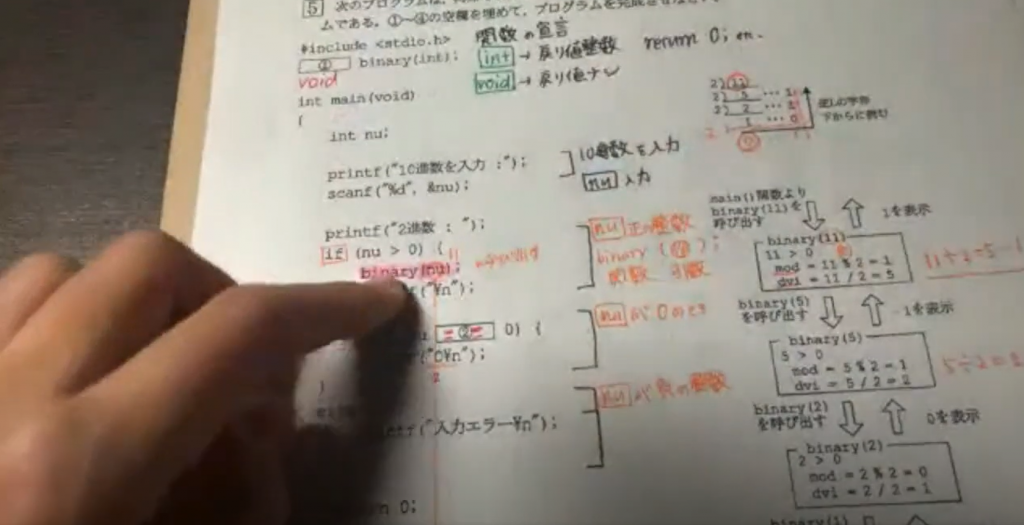 5 次のプログラムは、
ムである。①~④の空欄を埋めて、プログラムを完成させなさ
#include <stdio.h>
① binary(int);
void
関数の宣言
int → 戻り値整数 return 0; en.
void → 戻り値ナシ
int main(void)
{
int nu;
printf("10進数を入力 :");
scanf("%d", &nu);
10進数を入力
nu 入力
printf("2進数 : ");
if (nu > 0) {
11
binary(nu);
("¥n");
nu 正の整数
binary ( ) ;
関数 引数
② 0) {
==
("0¥n");
2
nu が0のとき
}
("入力エラー¥n");
nu が 負の整数
0;
2) 11
2) 5 ... 1
2) 2 ... 1
1 ... 0
下からに読む
main()関数より
binary(11)を
呼び出す
1を表示
binary(11)
11 > 0
mod = 11 % 2 = 1
dvi = 11 / 2 = 5
11÷2=5…1
binary(5)
を呼び出す
1を表示
binary(5)
5 > 0
mod = 5 % 2 = 1
dvi = 5 / 2 = 2
5÷2=2
binary(2)
を呼び出す
0を表示
binary(2)
2 > 0
mod = 2 % 2 = 0
dvi = 2 / 2 = 1
binary(1)